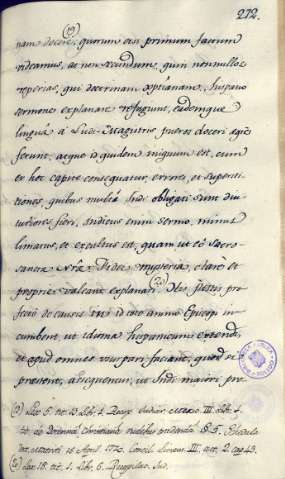 272.
nam docere, quorum seu primum factum
videamus, ac non secundum, quin nonnullos
reperias, qui doctrinam xptianam, hispano
sermone explanare refugiunt, eademque
linguâ á Ludi-Magistris pueros doceri ægrè
ferunt, atque id quidem mirum est, cum
ex hoc capite consequatur, errores, et supersti
tiones, quibus multâ Indi obligati sunt diu
tutiores fieri, Indicus enim sermo, minus
limatus, et excultus est, quam ut ea Sacro-
sancta nrâ Fidei mysteria, clarè et
propriè valeant explanari. His justis pro
fectò de causis in id toto animo Episcopi in
cumbent, ut idioma hispanicum extendi,
et apud omnes usurpari faciant, quod si
præstent, assequentur, ut Indi majori pro
Lex 5. tit. 13. Libr. 1. Recop. Indiar. Mexic. III. Libr. 1.
tit. de Doctrina Christiana rudibus tradenda § 5. Schedula
dat. Matriti 16 April. 1770. Concil. Limen. III. act. 2. cap. 43.
Lex 18. tit. 1. Libr. 6. Recopilac. Ind.